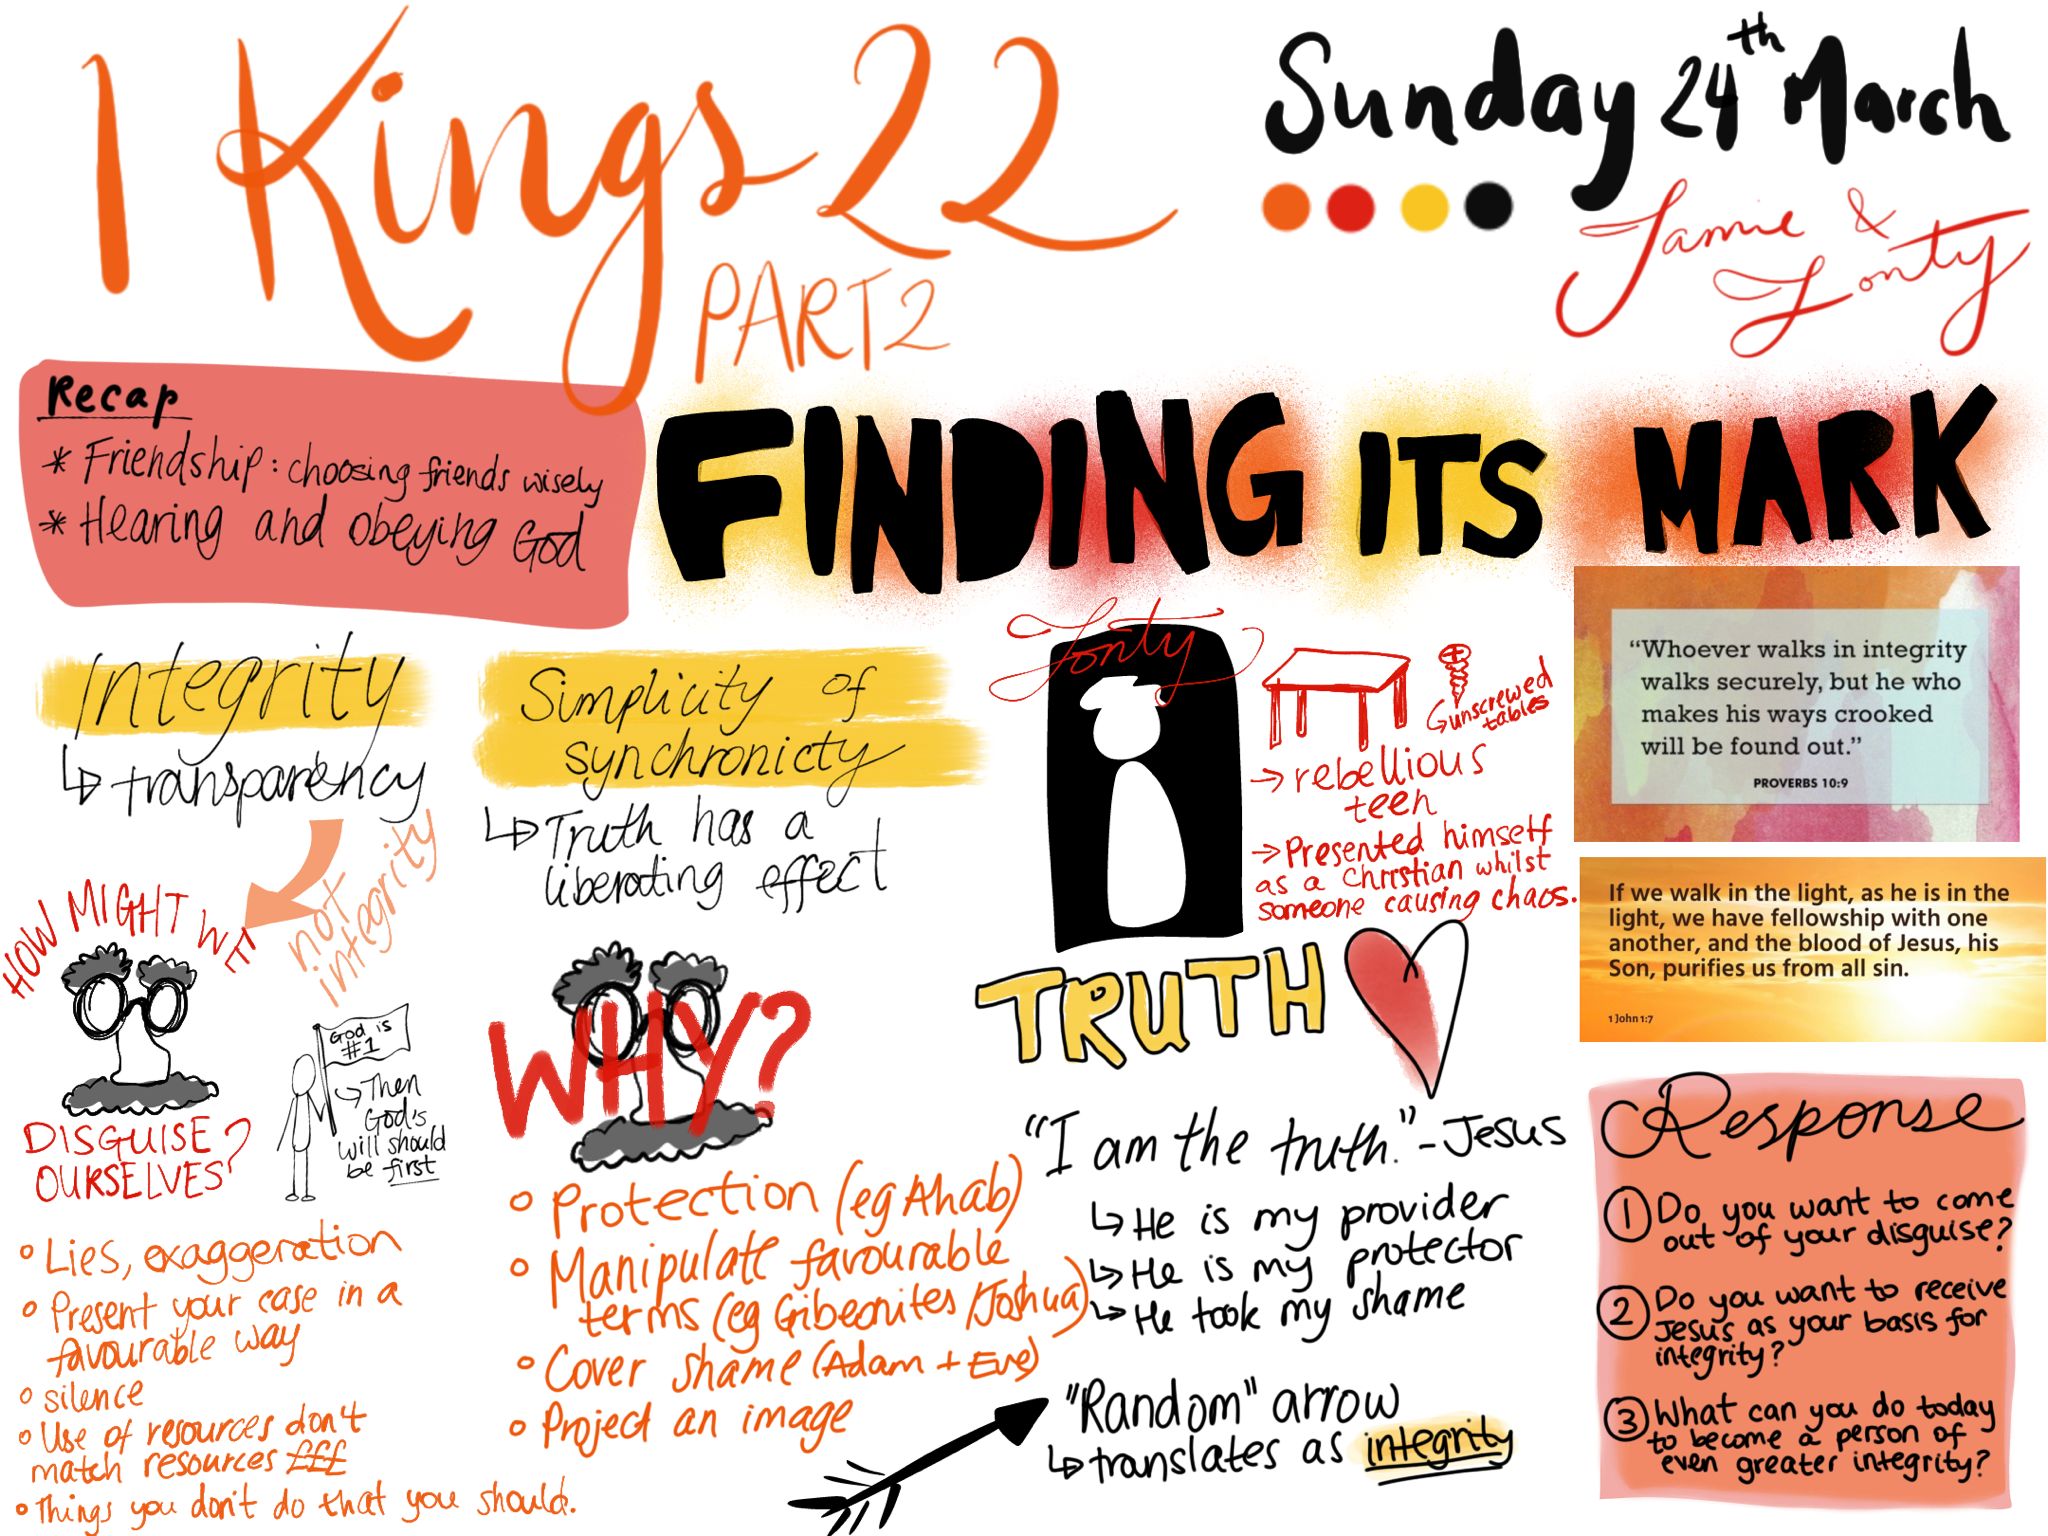 1 Kings 22
PART 2
Sunday 24th March
Jamie &
Jonty
Recap
* Friendship: choosing friends wisely
* Hearing and obeying God
FINDING ITS MARK
Integrity
↳ transparency
not
integrity
HOW MIGHT WE
DISGUISE
OURSELVES?
God is
#1
↳ Then
God's
will should
be first
◦ Lies, exaggeration
◦ Present your case in a
favourable way
◦ silence
◦ Use of resources don't
match resources £££
◦ Things you don't do that you should.
Simplicity of
synchronicty
↳ Truth has a
liberating effect
WHY?
◦ Protection (eg Ahab)
◦ Manipulate favourable
terms (eg Gibeonites/Joshua)
◦ Cover shame (Adam + Eve)
◦ Project an image
Jonty
↳ unscrewed
tables
→ rebellious
teen
→ Presented himself
as a Christian whilst
someone causing chaos.
TRUTH
"I am the truth." - Jesus
↳ He is my provider
↳ He is my protector
↳ He took my shame
"Random" arrow
↳ translates as integrity
“Whoever walks in integrity
walks securely, but he who
makes his ways crooked
will be found out.”
PROVERBS 10:9
If we walk in the light, as he is in the
light, we have fellowship with one
another, and the blood of Jesus, his
Son, purifies us from all sin.
1 John 1:7
Response
① Do you want to come
out of your disguise?
② Do you want to receive
Jesus as your basis for
integrity?
③ What can you do today
to become a person of
even greater integrity?